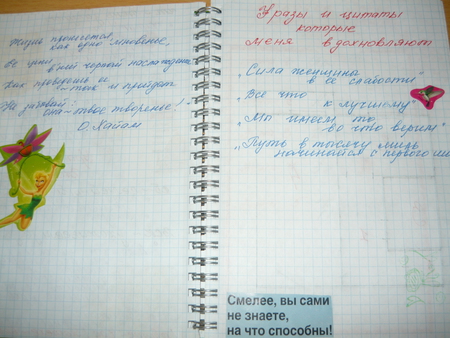 Жизнь пронесется,
как одно мгновенье,
Ее цени,
в ней черпай наслажденье.
Как проведешь ее
– так и пройдет
Не забывай:
она – твое творение!
О. Хайам
Фразы и цитаты
которые
меня вдохновляют
„Сила женщины
в её слабости"
„Всё что
к лучшему"
„Мы имеем то,
во что верим"
„Путь в тысячу миль
начинается с первого
Смелее, вы сами
не знаете,
на что способны!